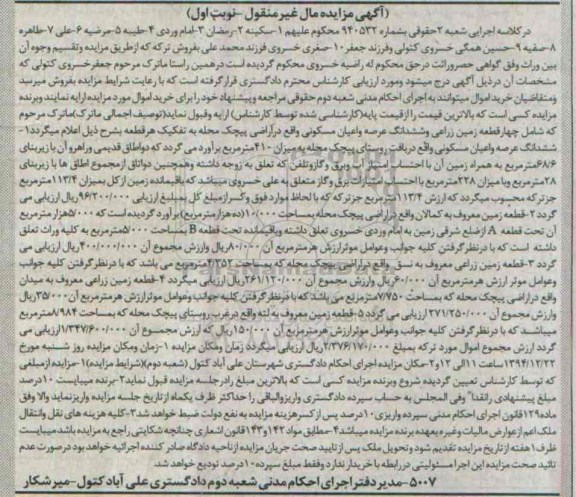 (آگهی مزایده مال غیر منقول -نوبت اول)
درکلاسه اجرایی شعبه ۲حقوقی بشماره ۹۴۰۵۳۲ محکوم علیهم ۱-سکینه ۲-رمضان ۳-امام وردی ۴-طیبه ۵-مرضیه ۶-علی ۷-طاهره
۸-صفیه ۹-حسین همگی خسروی کتولی وفرزند جعفر۱۰-صغری خسروی فرزند محمد علی بفروش ترکه که ازطریق مزایده وتقسیم وجوه آن
بین وراث وفق گواهی حصروراثت درحق محکوم له راضیه خسروی محکوم گردیده است درهمین راستا ماترک مرحوم جعفرخسروی کتولی که
مشخصات آن درذیل آگهی درج میشود ومورد ارزیابی کارشناس محترم دادگستری قرارگرفته است که با رعایت شرایط مزایده بفروش میرسد
ومتقاضیان خریداموال میتوانند به اجرای احکام مدنی شعبه دوم حقوقی مراجعه وپیشنهاد خود را برای خریداموال مورد مزایده ارایه نمایند وبرنده
مزایده کسی است که بالاترین قیمت را ازقیمت پایه(کارشناسی شده توسط کارشناس) ارایه وقبول نماید(توصیف اجمالی ماترک)ماترک مرحوم
که شامل چهارقطعه زمین زراعی وششدانگ عرصه واعیان مسکونی واقع دراراضی پیچک محله به تفکیک هرقطعه بشرح ذیل اعلام میگردد۱-
ششدانگ عرصه واعیان مسکونی واقع دربافت روستای پیچک محله به میزان ۴۱۰مترمربع برآورد می گردد که دواطاق قدیمی وراهرو آن با زیربنای
۶۸/۶مترمربع به همراه زمین آن با احتساب امتیاز آب وبرق وگازوتلفن که تعلق به زوجه داشته وهمچنین دواتاق ازمجموع اطاق ها با زیربنای
۲۸مترمربع وبا میزان ۲۲۸مترمربع با احتساب امتیازات برق وگاز متعلق به علی خسروی میباشد که باقیمانده زمین ازکل بمیزان ۱۱۳/۴مترمربع
جزترکه محسوب میگردد که ارزش ۱۱۳/۴ مترمربع جزترکه که با لحاظ موارد فوق وکسرازمبلغ کل بمبلغ ارزیابی ۹۶/۲۰۰/۰۰۰ریال ارزیابی می
گردد ۲-قطعه زمین معروف به کمالان واقع دراراضی پیچک محله بمساحت ۱۰/۰۰۰(ده هزارمترمربع)برآورد گردیده است که ۵/۰۰۰هزار مترمربع
آن تحت قطعه A ازضلع شرقی زمین به امام وردی خسروی تعلق داشته وباقیمانده تحت قطعه B بمساحت ۵/۰۰۰مترمربع به کلیه وراث تعلق
داشته است که با درنظرگرفتن کلیه جوانب وعوامل موثرارزش هرمترمربع آن ۸۰/۰۰۰ریال وارزش مجموع آن ۴۰۰/۰۰۰/۰۰۰ریال ارزیابی می
گردد ۳-قطعه زمین زراعی معروف به نسق واقع دراراضی پیچک محله که بمساحت ۴/۳۵۲مترمربع می باشد که با درنظرگرفتن کلیه جوانب
وعوامل موثر ارزش هرمترمربع آن ۶۰/۰۰۰ریال وارزش مجموع آن ۲۶۱/۱۲۰/۰۰۰ریال ارزیابی میگردد ۴-قطعه زمین زراعی معروف به میدان
واقع دراراضی پیچک محله که بمساحت ۷/۷۵۰مترمربع می باشد که با درنظرگرفتن کلیه جوانب وعوامل موثرارزش هرمترمربع آن ۳۵/۰۰۰ریال
وارزش مجموع آن ۲۷۱/۲۵۰/۰۰۰ ارزیابی می گردد ۵-قطعه زمین معروف به لته واقع درغرب روستای پیچک محله که بمساحت ۸/۹۸۴مترمربع
میباشد که با درنظرگرفتن کلیه جوانب وعوامل موثرارزش هرمترمربع آن ۱۵۰/۰۰۰ریال که ارزش مجموع آن ۱/۳۴۷/۶۰۰/۰۰۰ارزیابی می
گردد ارزش مجموع اموال مورد ترکه بمبلغ ۲/۳۷۶/۱۷۰/۰۰۰ریال ارزیابی میگردد زمان ومکان مزایده ۱-زمان ومکان مزایده روز شنبه مورخ
۱۳۹۴/۱۲/۲۲ ساعت ۱۱الی ۱۲و۲-مکان مزایده اجرای احکام دادگستری شهرستان علی آباد کتول (شعبه دوم)(شرایط مزایده)۱-مزایده ازمبلغی
که توسط کارشناس تعیین گردیده شروع وبرنده مزایده کسی است که بالاترین مبلغ رادرجلسه مزایده قبول نماید۲-برنده میبایست ۱۰درصد
مبلغ پیشنهادی رانقدا" وفی المجلس به حساب سپرده دادگستری واریزوالباقی را حداکثر ظرف یکماه ازتاریخ جلسه مزایده واریزنماید والا وفق
ماده۱۲۹قانون اجرای احکام مدنی سپرده واریزی ۱۰درصد پس ازکسرهزینه مزایده به نفع دولت ضبط خواهد شد۳-کلیه هزینه های نقل وانتقال
ملک اعم ازعوارض مالیات وغیره بعهده برنده مزایده میباشد۴-مطابق مواد ۱۴۲و۱۴۳قانون اشعاری چنانچه شکایتی راجع به مزایده باشد میبایست
ظرف ۱هفته ازتاریخ مزایده تقدیم شود وتحویل ملک پس ازتایید صحت جریان مزایده ازناحیه دادگاه صادرکننده اجرائیه خواهد بود درصورت عدم
تائید صحت مزایده این اجرا مسئولیتی دررابطه با خریدار ندارد وفقط مبلغ سپرده ۱۰درصد تودیع خواهد شد.
۵۰۰۷-مدیر دفتر اجرای احکام مدنی شعبه دوم دادگستری علی آباد کتول-میر شکار